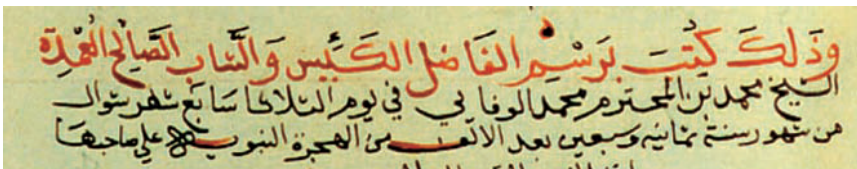 وذلك كتب برسم الفاضل الكيس والشاب الصالح العمدة
الشيخ محمد بن المحترم محمد الوفايي في يوم الثلاثا سابع شهر شوال
من شهور سنة ثمانيه وسبعين بعد الالف من الهجرة النبويه على صاحبها